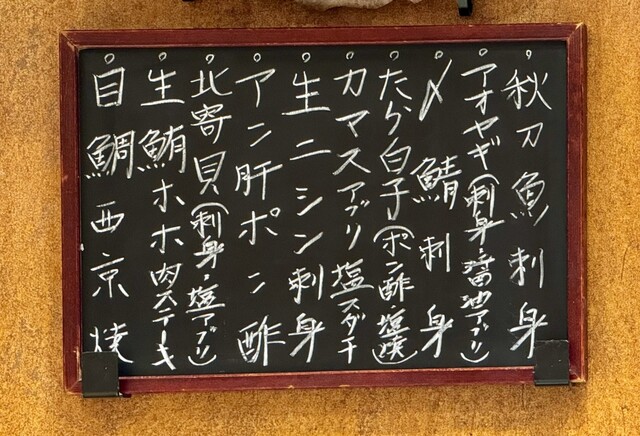 ○秋刀魚刺身
○アオヤギ(刺身・醤油アブリ)
○〆鯖刺身
○たら白子(ポン酢塩焼)
○カマスアブリ塩スダチ
○生ニシン刺身
○アン肝ポン酢
○北寄貝(刺身・塩アブリ)
○生鮪ホホ肉ステーキ
○目鯛西京焼